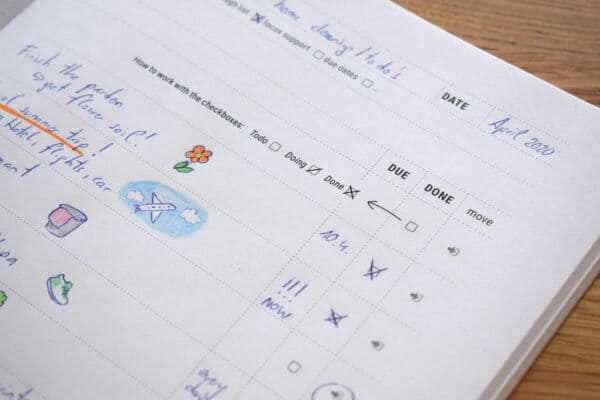 home cleaning / to do's
gh list focus support due dates ...
DATE April 2020
How to work with the checkboxes: Todo Doing Done
DUE DONE move
Finish the garden
get flower soil!
of summer trip!
hotel, flights, car
10.4.
!!!
NOW
every
day